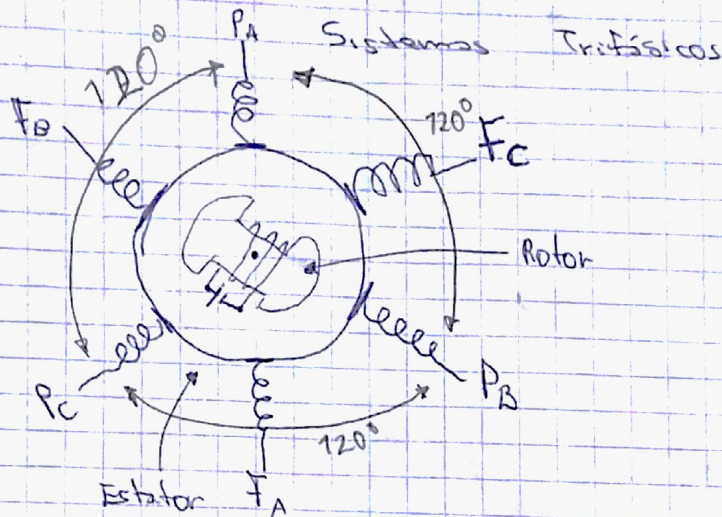 Sistemas Trifásicos
PA
120°
120°
FB
FC
Rotor
PC
PB
120°
Estator
FA